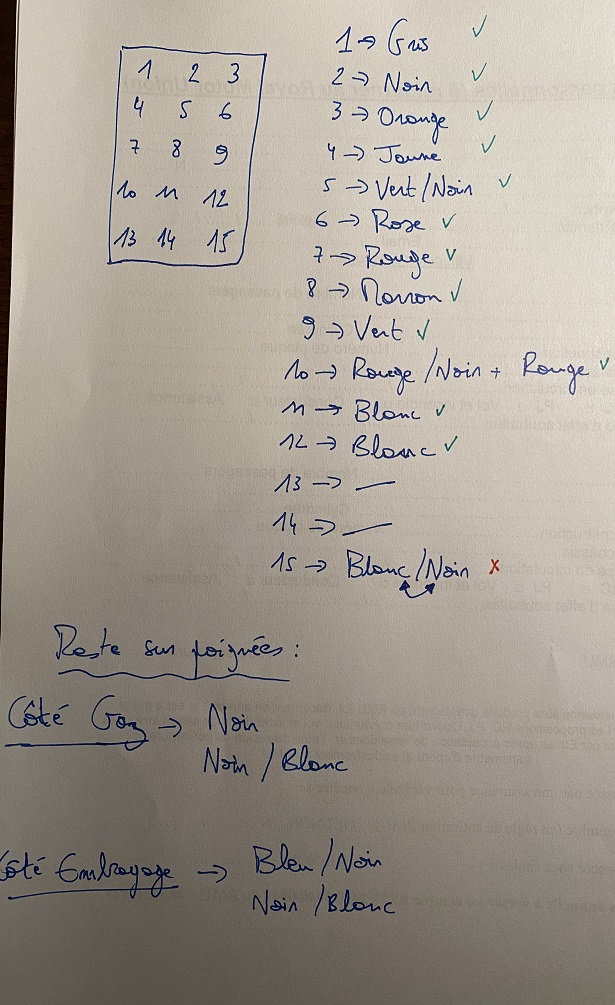 1 2 3
4 5 6
7 8 9
10 11 12
13 14 15
1 → Gris ✓
2 → Noir ✓
3 → Orange ✓
4 → Jaune ✓
5 → Vert/Noir ✓
6 → Rose ✓
7 → Rouge ✓
8 → Marron ✓
9 → Vert ✓
10 → Rouge/Noir + Rouge ✓
11 → Blanc ✓
12 → Blanc ✓
13 → —
14 → —
15 → Blanc/Noir x
Reste sur poignées :
Côté Gaz → Noir
Noir / Blanc
Côté Embrayage → Bleu/Noir
Noir/Blanc